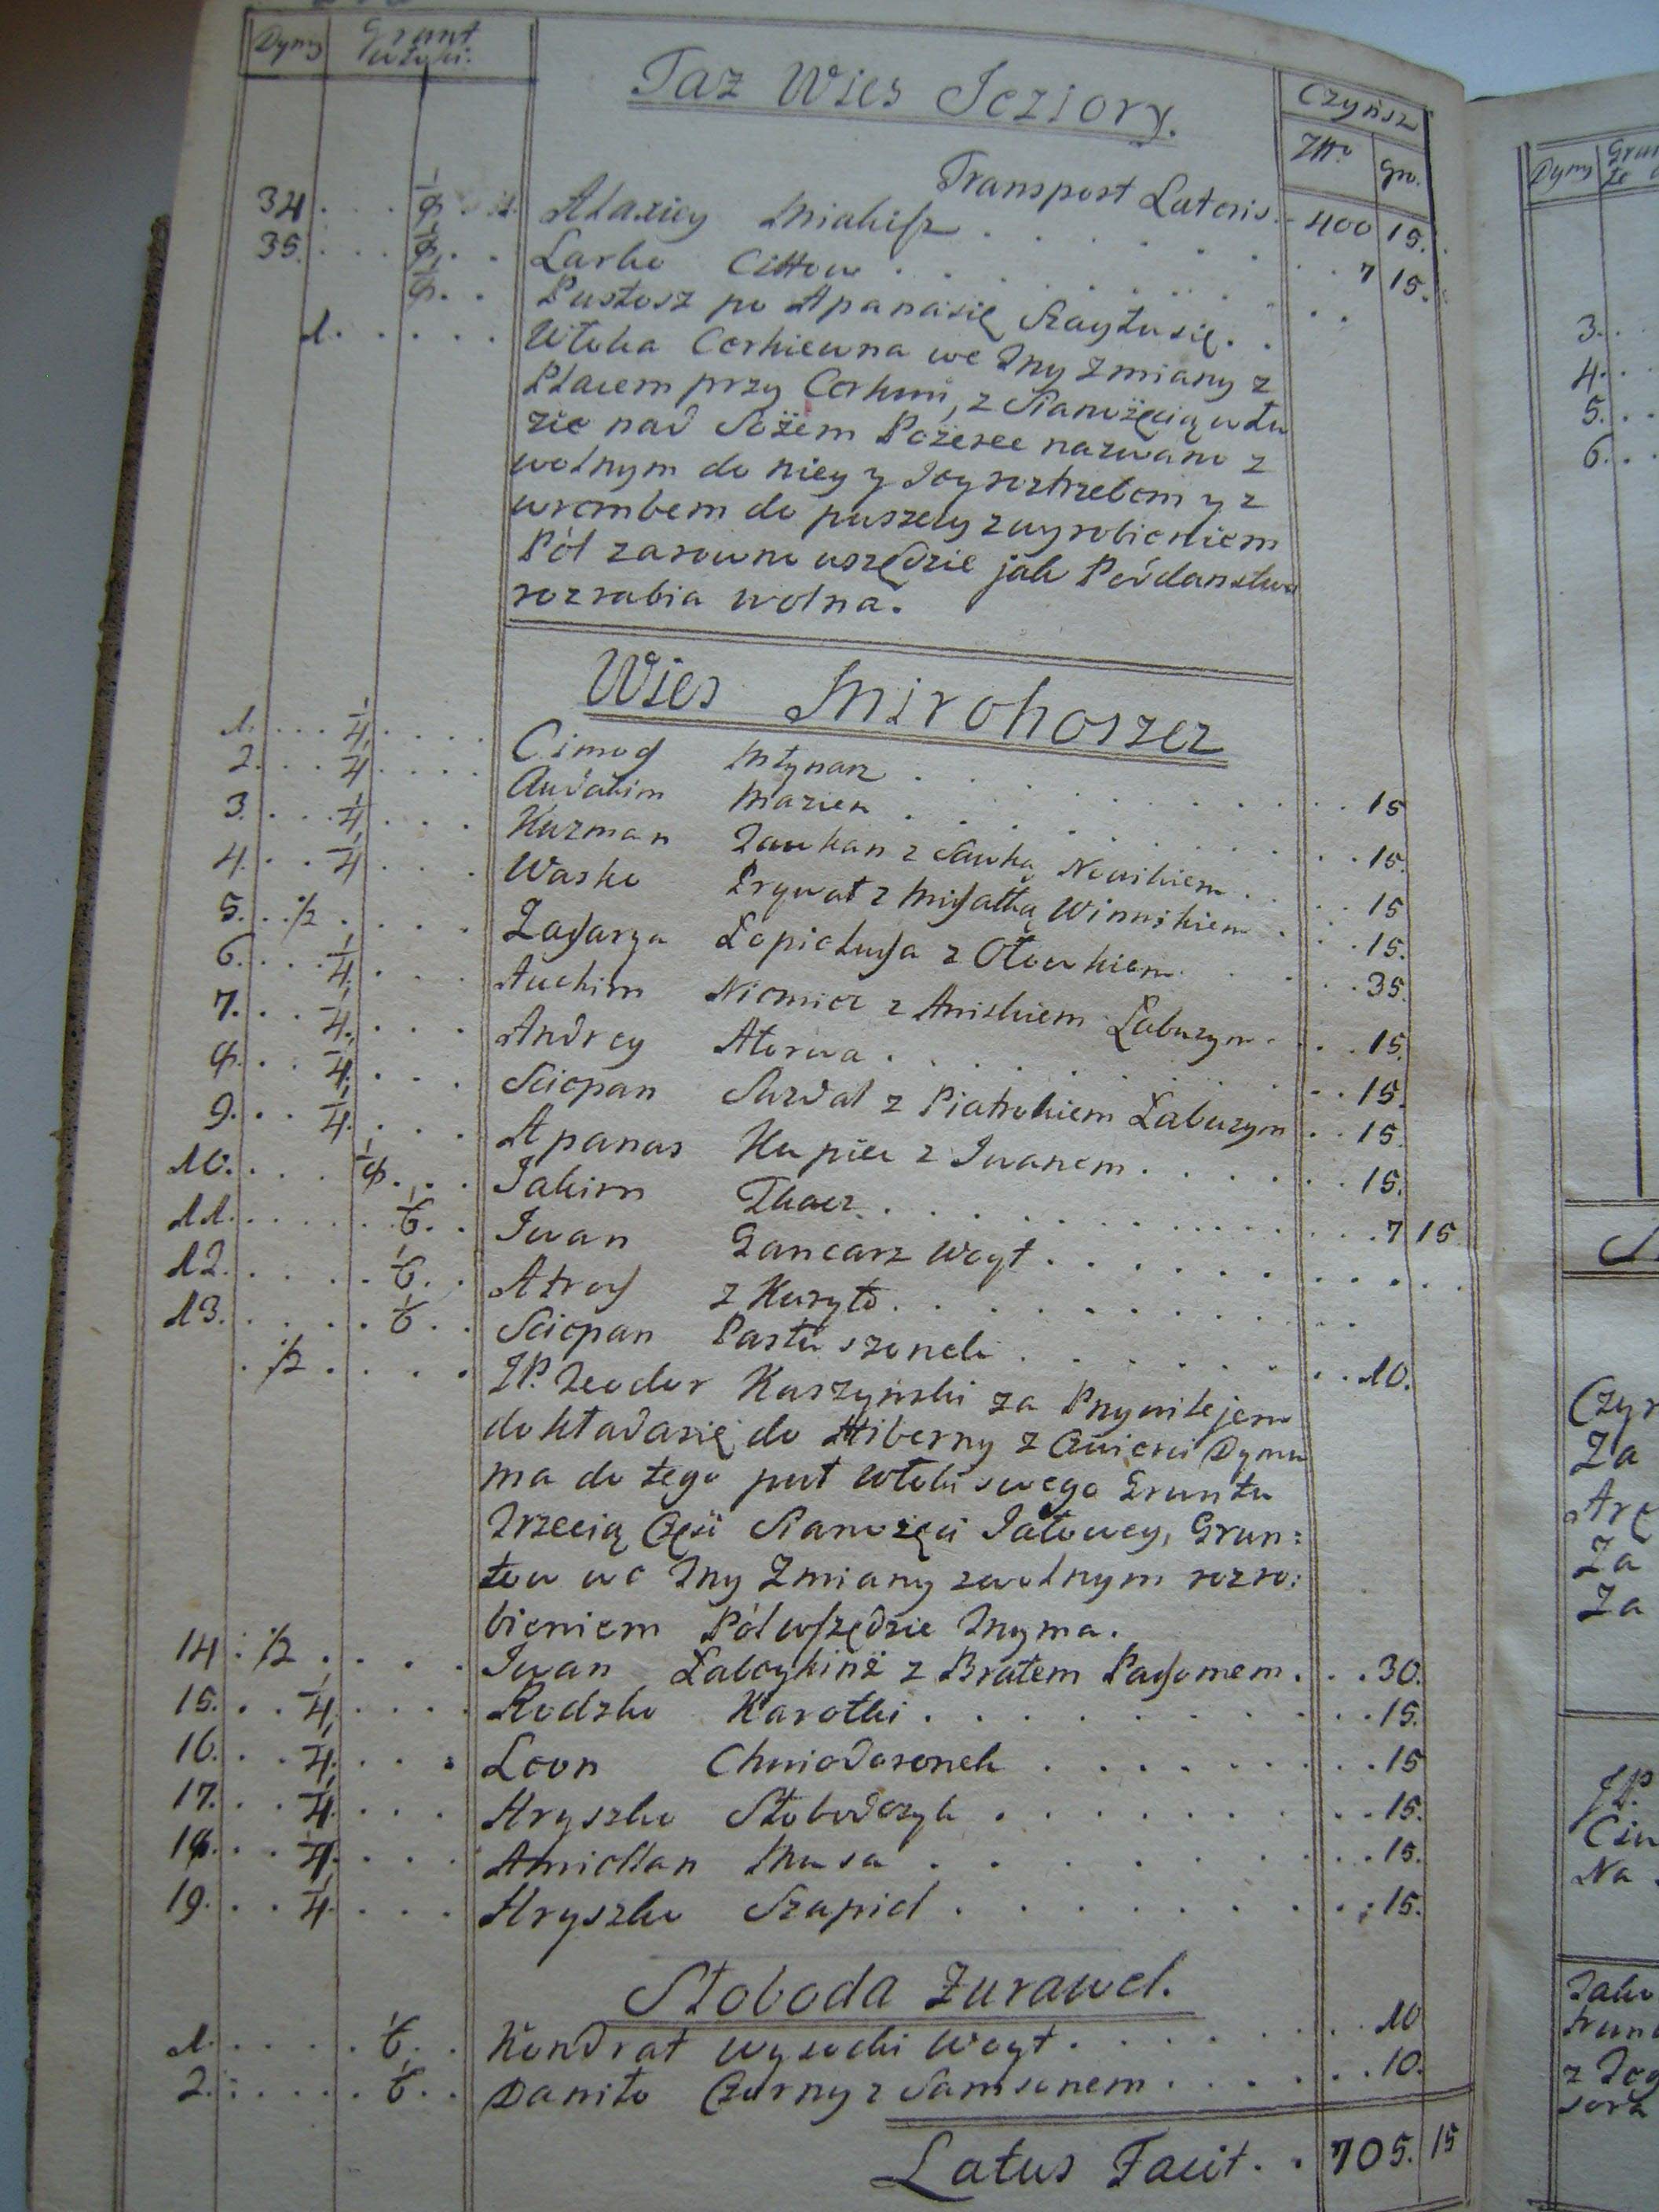 Dymy Grunt włoki. Taż Wies Jeziory. Czynsz
Złł. Gro.
Transport Lateris. 400 15.
34 1/8 Alaxiey Miakisz 7 15.
35. 1/8 Larko Cittow
1/8 Pustosz po Apanasię Szaytusię.
1. Włoka Cerkiewna we Iny Zmiany z
Placem przy Cerkwi, z Sianożęcią w Łu
zie nad Sożem Pożeree nazwano z
wolnym do niey y Jey roztrzebom y z
wrembem do puszczy z wyrobieniem
Pól zarowno wszędzie jak Poddanstwo
rozrabia wolna.
Wies Mirohoszcz
1. 1/4 Cimoch Młynarz 15
2. 1/4 Audakim Mazien 15.
3. 1/4 Kuzman Zaukan z Sawką Nowikiem 15
4. 1/4 Wasko Prywat z Michałką Winnikiem 15.
5. 1/2 Zacharya Łopiatucha z Ołowkiem 35.
6. 1/4 Auchim Niemiec z Aniskiem Łabuzym 15.
7. 1/4 Andrey Aterwa 15.
8. 1/4 Sciepan Suzdal z Piatrokiem Łabuzym 15.
9. 1/4 Apanas Kupiec z Iwanem 15.
10. 1/8 Jakim Tkacz 7 15
11. 1/6 Iwan Gancarz Woyt
12. 1/6 Atroch z Kuryło
13. 1/6 Sciepan Pastuszonek 10.
1/2 JP. Teodor Kaszyński za Przywilejem
dokładasię do Hiberny z Cwierci Dymu
ma do tego puł włoki swego Gruntu
Trzecią Częsc Sianożęci Jałowey, Grun:
tow we Iny Zmiany z wolnym rozro:
bieniem Pól wszędzie Iny ma.
14 1/2 Iwan Łaboykinż z Bratem Pachomem 30.
15. 1/4 Rodzko Karotki 15.
16. 1/4 Leon Chwiodosonek 15
17. 1/4 Hryszko Słobodczyk 15.
18. 1/4 Amiellan Musa 15.
19. 1/4 Hryszko Szapiel 15.
Słoboda Żurawel.
1. 1/6 Kondrat Wysocki Woyt 10
2. 1/6 Daniło Czorny z Samsonem 10.
Latus Facit 705. 15
Dymy
3.
4.
5.
6.
Za
Za
Za
JP.
Na